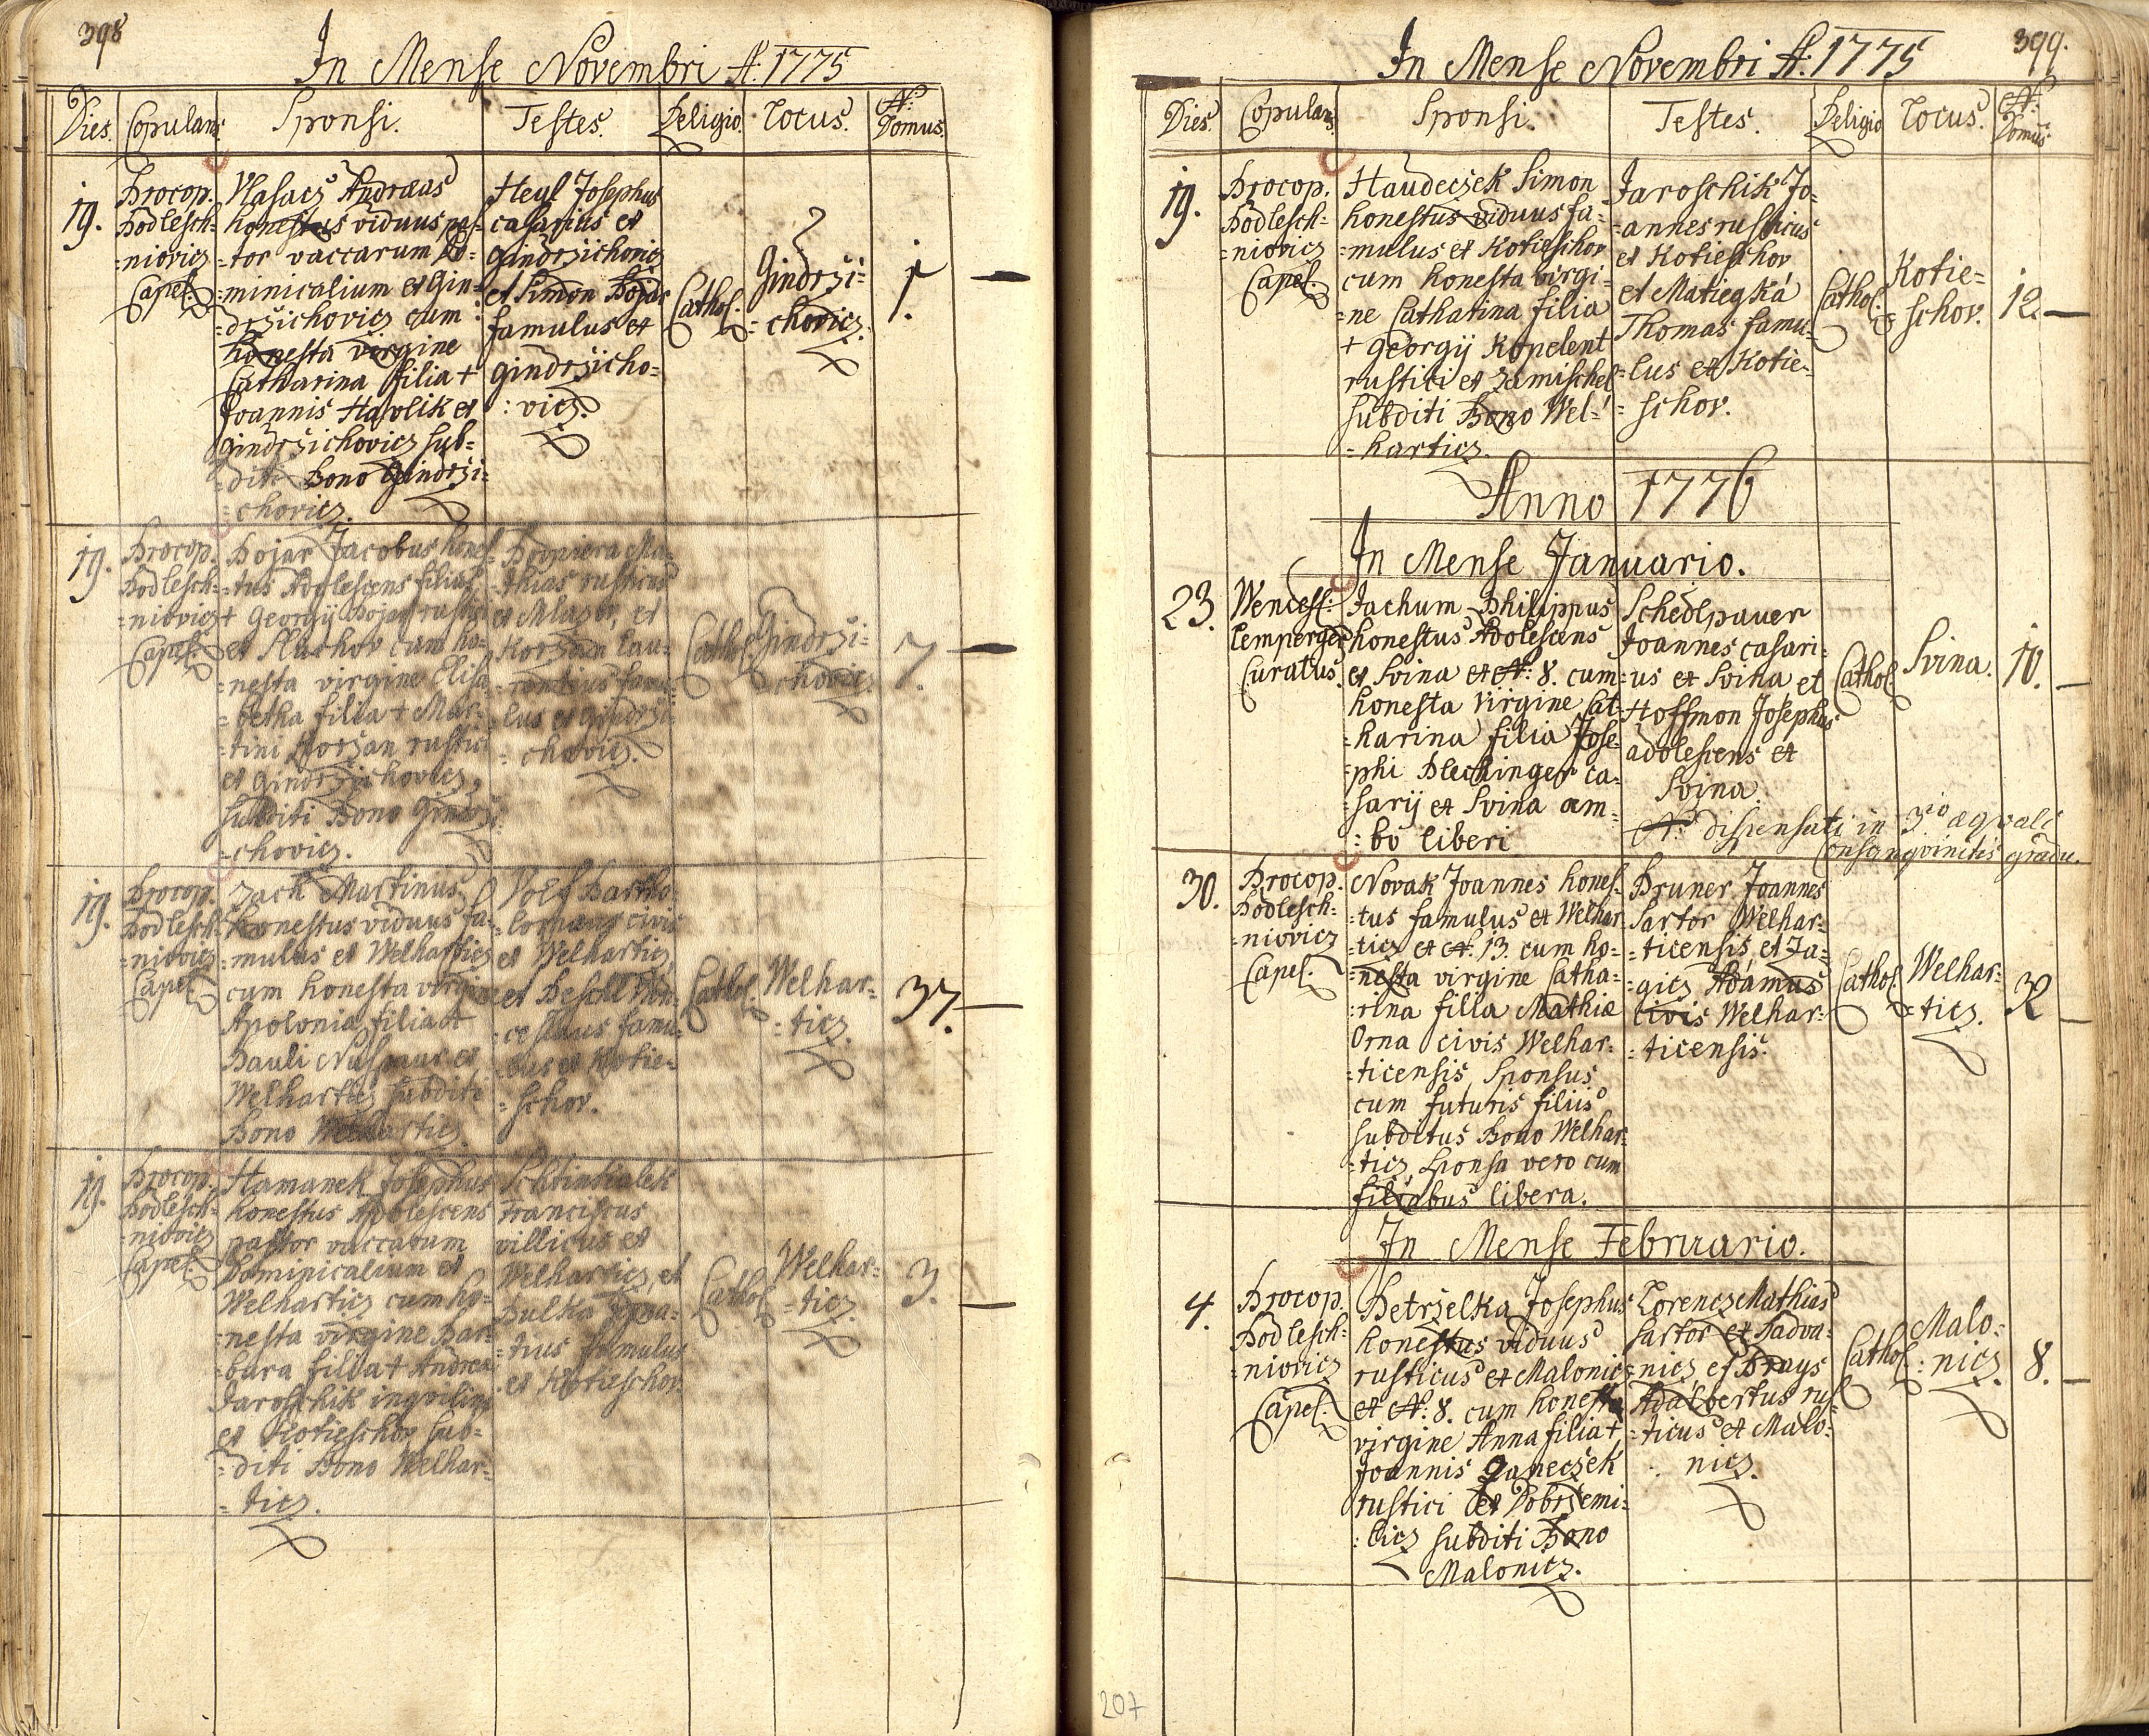 398
In Mense Novembri A: 1775
Dies. Copulans Sponsi. Testes. Religio. Locus. N: Domus.
19.
Procop.
Podlesch=
=niovicz
Capel.
Vlasacz Andraeas
honestus viduus pas=
=tor vaccarum Do=
=minicalium ex Gin=
=drzichovicz cum
honesta virgine
Catharina filia +
Joannis Havlik ex
Gindrzichovicz sub=
=diti Bono Gindrzi=
=chovicz.
Heyl Josephus
casarius ex
Gindrzichovicz
et Simon Bojar
famulus ex
Gindrzicho=
=vicz.
Cathol.
Gindrzi=
=chovicz.
1.
19.
Procop.
Podlesch=
=niovicz
Capel.
Bojar Jacobus hones=
=tus Adolescens filius
+ Georgij Bojar rustici
ex Sluchov cum ho=
=nesta virgine Elisa=
=betha filia + Mar=
=tini Korzan rustici
ex Gindrzichovicz,
subditi Bono Gindrzi=
=chovicz.
Ma=
=thias rusticus
ex Mlazov, et
Korzan Lau=
=rentius famu=
=lus ex Gindrzi=
=chovicz.
Cathol.
Gindrzi=
=chovicz.
7.
19.
Procop.
Podlesch=
=niovicz
Capel.
Zach Martinus
honestus viduus fa=
=mulus ex Welharticz
cum honesta virgine
Apolonia filia +
Pauli ex
Welharticz subditi
Bono Welharticz.
Volf Bartho=
=lomaeus civis
ex Welharticz,
et Peschl Wen=
=ceslaus famu=
=lus ex Kotie=
=schov.
Cathol.
Welhar=
=ticz.
37.
19.
Procop.
Podlesch=
=niovicz
Capel.
Hamanek Josephus
honestus Adolescens
pastor vaccarum
Dominicalium ex
Welharticz cum ho=
=nesta virgine Bar=
=bara filia + Andreae
Jaroschik inqvilini
ex Kotieschov sub=
=diti Bono Welhar=
=ticz.
Franciscus
villicus ex
Welharticz, et
Pulka Igna=
=tius famulus
ex Kotieschov.
Cathol.
Welhar=
=ticz.
3.
399.
In Mense Novembri A: 1775
Dies. Copulans Sponsi. Testes. Religio Locus. N: Domus
19.
Procop.
Podlesch=
=niovicz
Capel.
Haudeczek Simon
honestus viduus fa=
=mulus ex Kotieschov
cum honesta virgi=
=ne Catharina filia
+ Georgij Kopelent
rustici ex Zamischel
subditi Bono Wel=
=harticz.
Jaroschik Jo=
=annes rusticus
ex Kotieschov
et Matiegka
Thomas famu=
=lus ex Kotie=
=schov.
Cathol.
Kotie=
schov.
12.
Anno 1776
In Mense Januario.
23.
Wencesl:
Lemperger
Curatus.
Jachum Philippus
honestus Adolescens
ex Svina ex N: 8. cum
honesta virgine Cat=
=harina filia Jose=
=phi Plechinger ca=
=sarij ex Svina am=
=bo liberi
Schedlpauer
Joannes casari=
=us ex Svina et
Hoffmon Josephus
adolescens ex
Svina.
N: dispensati in 3io aeqvali
consangvinitis gradu.
Cathol.
Svina.
10.
30.
Procop.
Podlesch=
=niovicz
Capel.
Novak Joannes hones=
=tus famulus ex Welhar=
=ticz ex N: 13. cum ho=
=nesta virgine Catha=
=rina filia Mathiae
Orna civis Welhar=
=ticensis, Sponsus
cum futuris filiis
subditus Bono Welhar=
=ticz, Sponsa vero cum
filiabus libera.
Bruner Joannes
Sartor Welhar=
=ticensis, et Ja=
=gicz Adamus
civis Welhar=
=ticensis.
Cathol.
Welhar=
=ticz.
32
In Mense Februario.
4.
Procop.
Podlesch=
niovicz
Capel.
Petrzelka Josephus
honestus viduus
rusticus ex Malonicz
ex N: 8. cum honesta
virgine Anna filia +
Joannis Janeczek
rustici ex Dobrzemi=
=licz subditi Bono
Malonicz.
Lorencz Mathias
sartor ex Nadva=
=nicz, et Prays
Adalbertus rus=
=ticus ex Malo=
nicz.
Cathol.
Malo=
=nicz.
8.
207